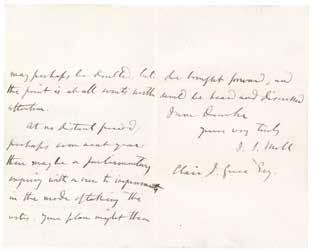 may perhaps be doubted, but
the point is at all events worth
attention.
At no distant period,
perhaps even next year,
there may be a parliamentary
enquiry with a view to improvement
in the mode of taking the
votes. Your plan might then
be brought forward, and
would be heard and discussed
I am Dear Sir
yours very truly
J. S. Mill
J. Grece Esq.